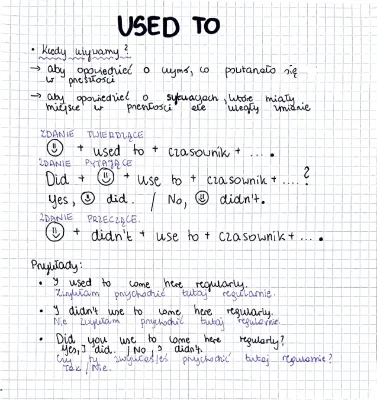 USED TO
• Kiedy używamy?
→ aby opowiedzieć o czymś, co powtarzało się
w przeszłości
→ aby opowiedzieć o sytuacjach, które miały
miejsce w przeszłości ale uległy zmianie
ZDANIE TWIERDZĄCE
☺ + used to + czasownik + ....
ZDANIE PYTAJĄCE
Did + ☺ + use to + czasownik + ....?
Yes, ☺ did. / No, ☺ didn't.
ZDANIE PRZECZĄCE.
☺ + didn't + use to + czasownik + ....
Przykłady:
• I used to come here regularly.
Zwykłam przychodzić tutaj regularnie.
• I didn't use to come here regularly.
Nie zwykłam przychodzić tutaj regularnie.
• Did you use to come here regularly?
Yes, I did. / No, I didn't.
Czy ty zwykłaś przychodzić tutaj regularnie?
Tak / Nie.